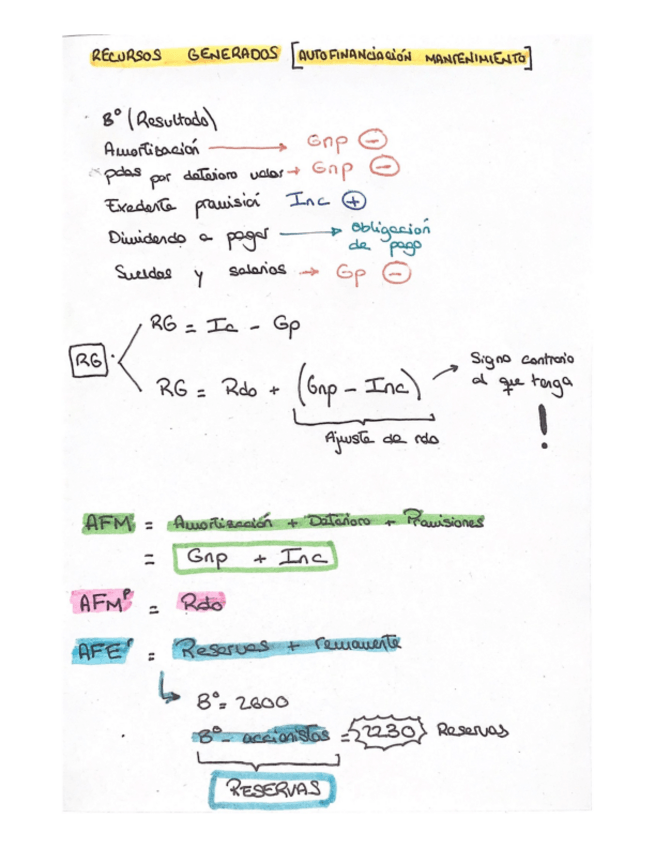 RECURSOS GENERADOS [AUTOFINANCIACIÓN MANTENIMIENTO]
Bº (Resultado)
Amortización → Gnp ⊖
pdas por deterioro valor → Gnp ⊖
Exedente provisió Inc ⊕
Dividendo a pagar → obligación de pago
Sueldos y salarios → Gp ⊖
RG = Ic - Gp
RG
RG = Rdo + (Gnp - Inc) → Signo contrario al que tenga !
Ajuste de rdo
AFM = Amortización + Deterioro + Provisiones
= Gnp + Inc
AFMᴾ = Rdo
AFEʳ = Reservas + remanente
↳ Bº = 2600
Bº - accionistas = 2230 Reservas
RESERVAS